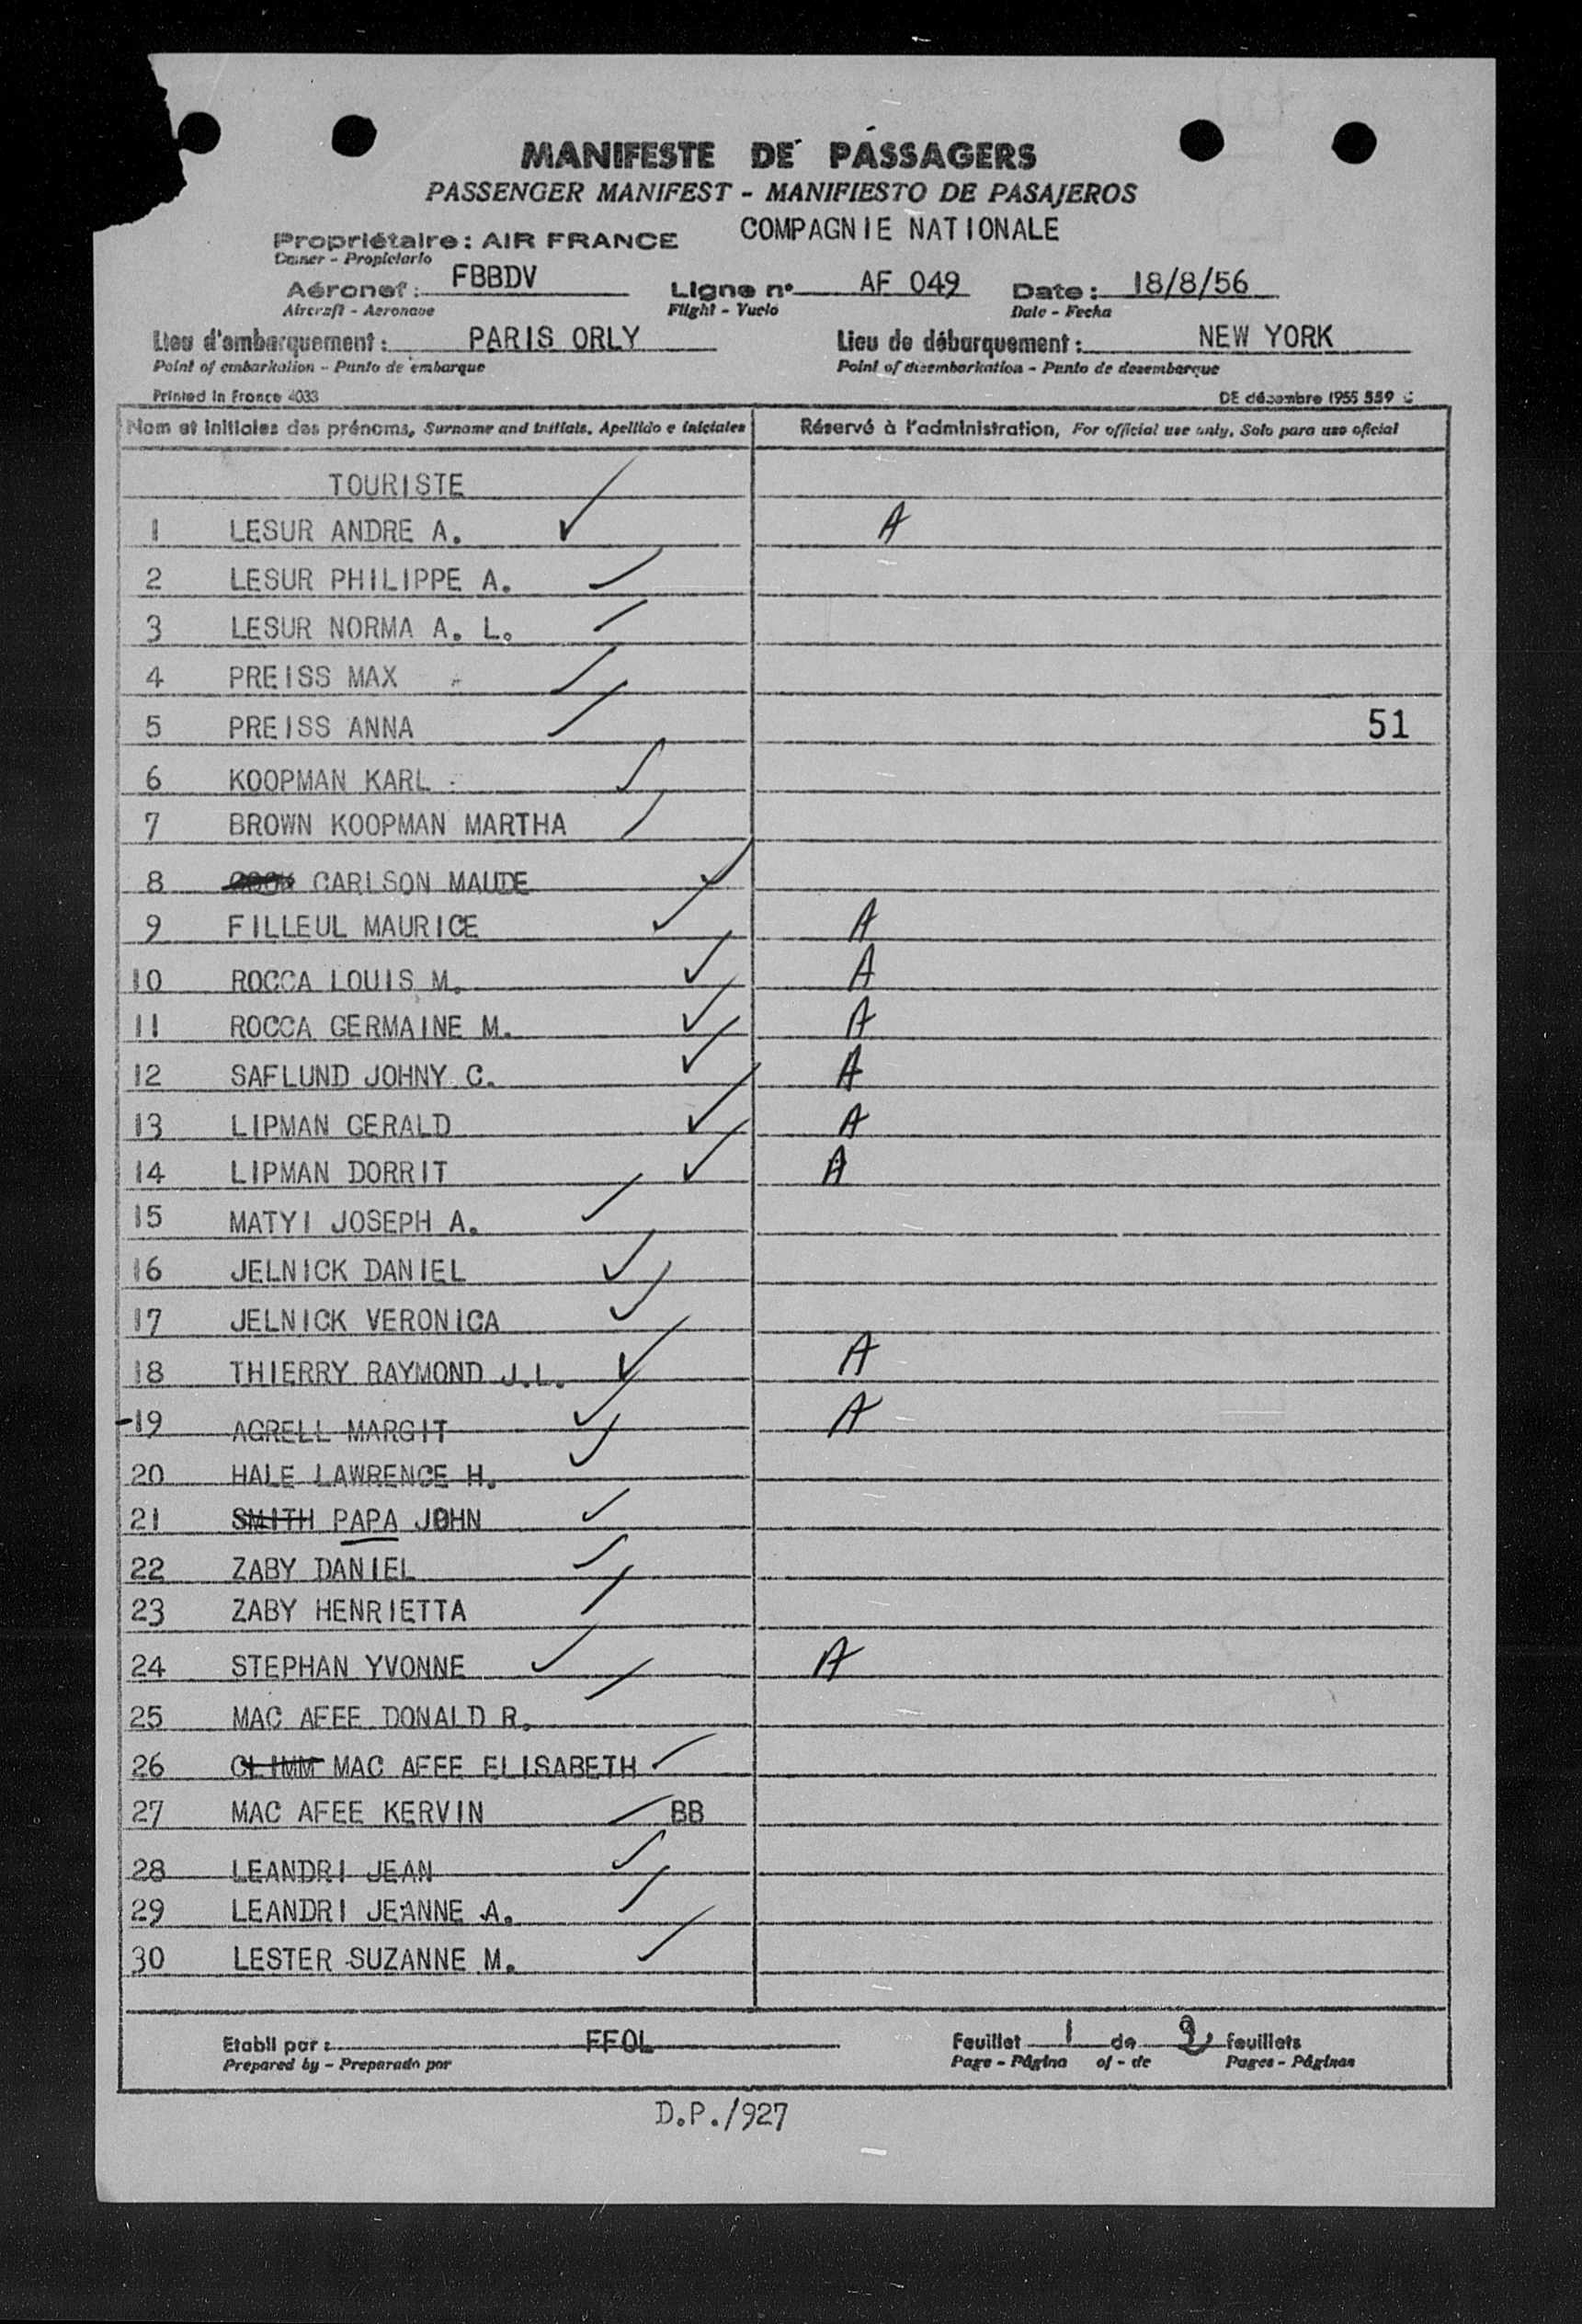 MANIFESTE DE PASSAGERS
PASSENGER MANIFEST - MANIFIESTO DE PASAJEROS
Propriétaire: AIR FRANCE COMPAGNIE NATIONALE
Owner - Propietario
Aéronef: FBBDV Ligne n° AF 049 Date: 18/8/56
Aircraft - Aeronave Flight - Vuelo Date - Fecha
Lieu d'embarquement: PARIS ORLY Lieu de débarquement: NEW YORK
Point of embarkation - Punto de embarque Point of disembarkation - Punto de desembarque
Printed in France 4033 DE décembre 1955 559
Nom et initiales des prénoms, Surname and initials, Apellido e iniciales Réservé à l'administration, For official use only, Solo para uso oficial
TOURISTE
1 LESUR ANDRE A. A
2 LESUR PHILIPPE A.
3 LESUR NORMA A. L.
4 PREISS MAX
5 PREISS ANNA 51
6 KOOPMAN KARL
7 BROWN KOOPMAN MARTHA
8 CARLSON MAUDE
9 FILLEUL MAURICE A
10 ROCCA LOUIS M. A
11 ROCCA GERMAINE M. A
12 SAFLUND JOHNY C. A
13 LIPMAN GERALD A
14 LIPMAN DORRIT A
15 MATYI JOSEPH A.
16 JELNICK DANIEL
17 JELNICK VERONICA
18 THIERRY RAYMOND J.L. A
-19 AGRELL MARGIT A
20 HALE LAWRENCE H.
21 SMITH PAPA JOHN
22 ZABY DANIEL
23 ZABY HENRIETTA
24 STEPHAN YVONNE A
25 MAC AFEE DONALD R.
26 CLIMM MAC AFEE ELISABETH
27 MAC AFEE KERVIN BB
28 LEANDRI JEAN
29 LEANDRI JEANNE A.
30 LESTER SUZANNE M.
Etabli par: FFOL Feuillet 1 de 2 feuillets
Prepared by - Preparado por Page - Página of - de Pages - Páginas
D.P./927